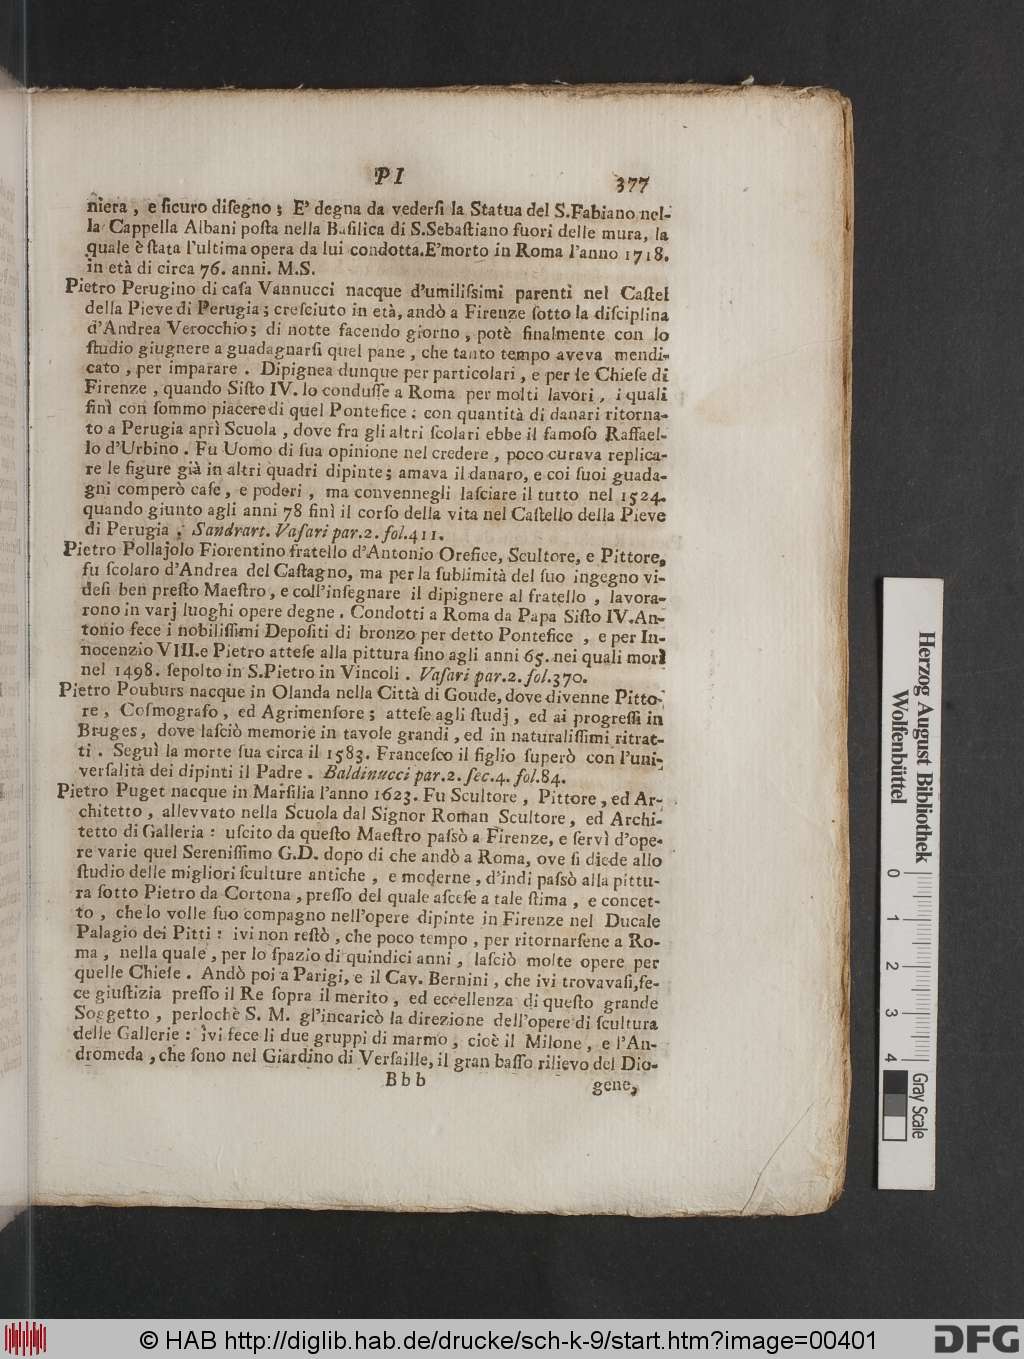 PI 377
niera, e ſicuro diſegno; E' degna da vederſi la Statua del S.Fabiano nel-
la Cappella Albani poſta nella Baſilica di S.Sebaſtiano fuori delle mura, la
quale è ſtata l'ultima opera da lui condotta.E'morto in Roma l'anno 1718.
in età di circa 76. anni. M.S.
Pietro Perugino di caſa Vannucci nacque d'umiliſsimi parenti nel Caſtel
della Pieve di Perugia; creſciuto in età, andò a Firenze ſotto la diſciplina
d'Andrea Verocchio; di notte facendo giorno, potè finalmente con lo
ſtudio giugnere a guadagnarſi quel pane, che tanto tempo aveva mendi-
cato, per imparare. Dipignea dunque per particolari, e per le Chieſe di
Firenze, quando Siſto IV. lo conduſſe a Roma per molti lavori, i quali
finì con ſommo piacere di quel Pontefice: con quantità di danari ritorna-
to a Perugia aprì Scuola, dove fra gli altri ſcolari ebbe il famoſo Raffael-
lo d'Urbino. Fu Uomo di ſua opinione nel credere, poco curava replica-
re le figure già in altri quadri dipinte; amava il danaro, e coi ſuoi guada-
gni comperò caſe, e poderi, ma convennegli laſciare il tutto nel 1524.
quando giunto agli anni 78 finì il corſo della vita nel Caſtello della Pieve
di Perugia. Sandrart. Vaſari par.2. fol.411.
Pietro Pollajolo Fiorentino fratello d'Antonio Orefice, Scultore, e Pittore,
fu ſcolaro d'Andrea del Caſtagno, ma per la ſublimità del ſuo ingegno vi-
deſi ben preſto Maeſtro, e coll'inſegnare il dipignere al fratello, lavora-
rono in varj luoghi opere degne. Condotti a Roma da Papa Siſto IV.An-
tonio fece i nobiliſſimi Depoſiti di bronzo per detto Pontefice, e per In-
nocenzio VIII.e Pietro atteſe alla pittura ſino agli anni 65. nei quali morì
nel 1498. ſepolto in S.Pietro in Vincoli. Vaſari par.2. fol.370.
Pietro Pouburs nacque in Olanda nella Città di Goude, dove divenne Pitto-
re, Coſmografo, ed Agrimenſore; atteſe agli ſtudj, ed ai progreſſi in
Bruges, dove laſciò memorie in tavole grandi, ed in naturaliſſimi ritrat-
ti. Seguì la morte ſua circa il 1583. Franceſco il figlio ſuperò con l'uni-
verſalità dei dipinti il Padre. Baldinucci par.2. ſec.4. fol.84.
Pietro Puget nacque in Marſilia l'anno 1623. Fu Scultore, Pittore, ed Ar-
chitetto, allevvato nella Scuola dal Signor Roman Scultore, ed Archi-
tetto di Galleria: uſcito da queſto Maeſtro paſsò a Firenze, e ſervì d'ope-
re varie quel Sereniſſimo G.D. dopo di che andò a Roma, ove ſi diede allo
ſtudio delle migliori ſculture antiche, e moderne, d'indi paſsò alla pittu-
ra ſotto Pietro da Cortona, preſſo del quale aſceſe a tale ſtima, e concet-
to, che lo volle ſuo compagno nell'opere dipinte in Firenze nel Ducale
Palagio dei Pitti: ivi non reſtò, che poco tempo, per ritornarſene a Ro-
ma, nella quale, per lo ſpazio di quindici anni, laſciò molte opere per
quelle Chieſe. Andò poi a Parigi, e il Cav. Bernini, che ivi trovavaſi,fe-
ce giuſtizia preſſo il Re ſopra il merito, ed eccellenza di queſto grande
Soggetto, perlochè S. M. gl'incaricò la direzione dell'opere di ſcultura
delle Gallerie: ivi fece li due gruppi di marmo, cioè il Milone, e l'An-
dromeda, che ſono nel Giardino di Verſaille, il gran baſſo rilievo del Dio-
Bbb gene,
Herzog August Bibliothek
Wolfenbüttel
0 1 2 3 4
Gray Scale
© HAB http://diglib.hab.de/drucke/sch-k-9/start.htm?image=00401
DFG